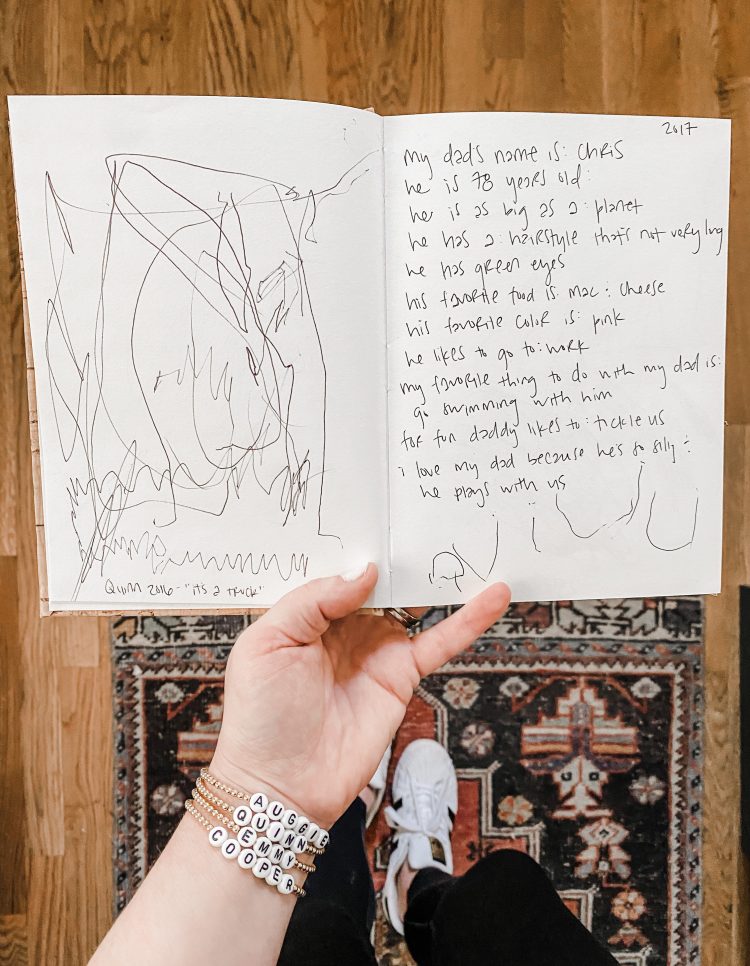 Quinn 2016 - "it's a truck"
2017
my dad's name is: Chris
he is 78 years old:
he is as big as a: planet
he has a: hairstyle that's not very long
he has green eyes
his favorite food is: mac : cheese
his favorite color is: pink
he likes to go to: work
my favorite thing to do with my dad is:
go swimming with him
for fun daddy likes to: tickle us
i love my dad because he's so silly :
he plays with us
AUGGIE
QUINN
EMMY
COOPER